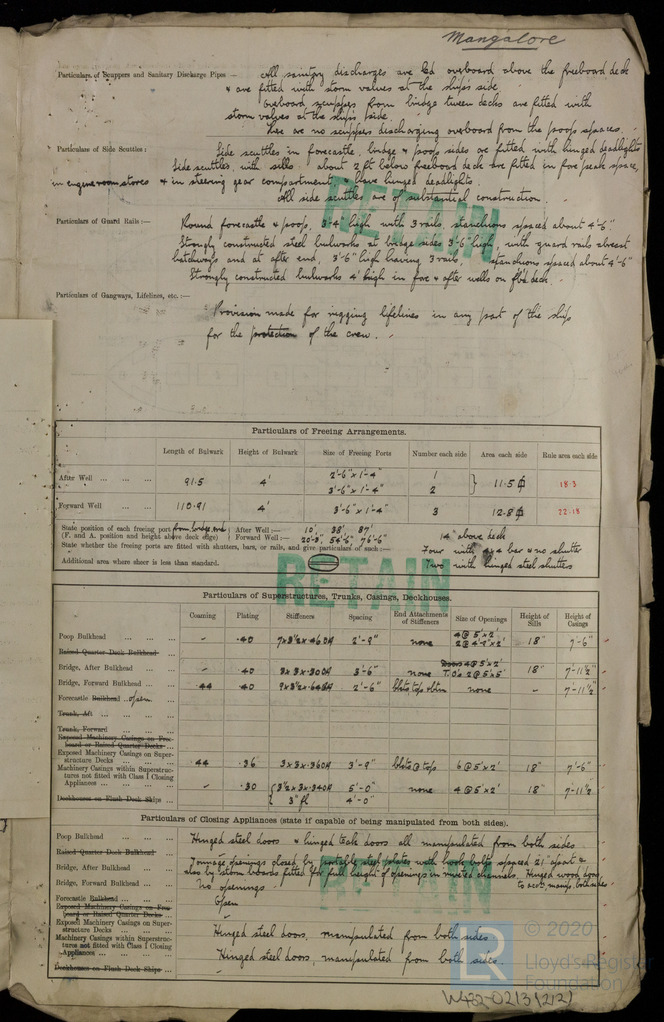 Mangalore
Particulars of Scuppers and Sanitary Discharge Pipes — All sanitary discharges are led overboard above the freeboard deck
& are fitted with storm valves at the ships side.
overboard scuppers from bridge tween decks are fitted with
storm valves at the ships side.
There are no scuppers discharging overboard from the poop spaces.
Particulars of Side Scuttles: Side scuttles in forecastle, bridge & poop sides are fitted with hinged deadlights
Side scuttles, with sills about 2 ft below freeboard deck are fitted in fore peak space,
in engine room stores & in steering gear compartment, & have hinged deadlights.
All side scuttles are of substantial construction.
RETAIN
Particulars of Guard Rails:— Round forecastle & poop, 3'-4" high with 3 rails, stanchions spaced about 4'-6"
Strongly constructed steel bulwarks at bridge sides 3'-6" high, with guard rails abreast
hatchways and at after end, 3'-6" high having 3 rails, stanchions spaced about 4'-6"
Strongly constructed bulwarks 4' high in fore & after wells on fbd deck.
Particulars of Gangways, Lifelines, etc.:— Provision made for rigging lifelines in any part of the ship
for the protection of the crew.
Particulars of Freeing Arrangements.
Length of Bulwark Height of Bulwark Size of Freeing Ports Number each side Area each side Rule area each side
After Well 91.5 4' 2'-6" x 1'-4" 1 11.5 18.3
3'-6" x 1'-4" 2
Forward Well 110.91 4' 3'-6" x 1'-4" 3 12.8 22.18
State position of each freeing port from bridge end After Well:— 10' 38' 87' 14" above deck
(F. and A. position and height above deck edge) Forward Well:— 20'-3" 54'-6" 76'-6"
State whether the freeing ports are fitted with shutters, bars, or rails, and give particulars of such:— Four with bar & no shutter
Additional area where sheer is less than standard. Two with hinged steel shutters
RETAIN
Particulars of Superstructures, Trunks, Casings, Deckhouses.
Coaming Plating Stiffeners Spacing End Attachments of Stiffeners Size of Openings Height of Sills Height of Casings
Poop Bulkhead - .40 7x3½x.46 BA 2'-9" none 4 @ 5'x2' 2 @ 4'-9"x2' 18" 7'-6"
Raised Quarter Deck Bulkhead
Bridge, After Bulkhead - .40 3x3x.30 BA 3'-6" none Doors 4 @ 5'x2' T.O's 2 @ 5'x5' 18" 7-11½"
Bridge, Forward Bulkhead .44 .40 9x3½x.64 BA 2'-6" bkts top & btm none - 7-11½"
Forecastle Bulkhead open
Trunk, Aft
Trunk, Forward
Exposed Machinery Casings on Freeboard or Raised Quarter Decks
Exposed Machinery Casings on Superstructure Decks .44 .36 3x3x.36 BA 3'-9" bkts @ top 6 @ 5'x2' 18" 7'-6"
Machinery Casings within Superstructures not fitted with Class I Closing Appliances - .30 3½x3x.34 BA 5'-0" none 4 @ 5'x2' 18" 7-11½
3" fl 4'-0"
Deckhouses on Flush Deck Ships
Particulars of Closing Appliances (state if capable of being manipulated from both sides).
Poop Bulkhead Hinged steel doors & hinged teak doors all manipulated from both sides
Raised Quarter Deck Bulkhead
Bridge, After Bulkhead Tonnage openings closed by portable steel plates with hook bolts spaced 21" apart &
also by storm boards fitted for full height of openings in riveted channels. Hinged wood doors
Bridge, Forward Bulkhead No openings.
RETAIN
Forecastle Bulkhead Open
Exposed Machinery Casings on Freeboard or Raised Quarter Decks
Exposed Machinery Casings on Superstructure Decks Hinged steel doors, manipulated from both sides
Machinery Casings within Superstructures not fitted with Class I Closing Appliances Hinged steel doors, manipulated from both sides
Deckhouses on Flush Deck Ships
LR
© 2020
Lloyd's Register
Foundation
W432-0213(2/2)